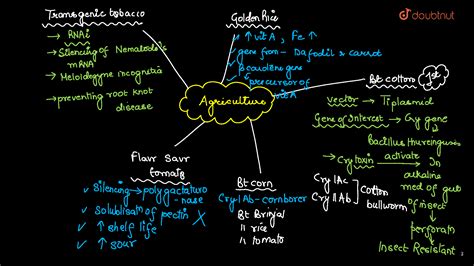 doubtnut
Transgenic tobacco
→ RNAi
→ Silencing of Nematode's
mRNA
→ Meloidogyne incognitia
→ preventing root knot
disease
Golden Rice
↑ vit A, Fe ↑
gene from - Daffodil & carrot
β carotene gene
↳ precursor of
vit A
Agriculture
Bt cotton 1st
vector → Ti plasmid
Gene of Interest → Cry gene
Bacillus thuringiensis
→ Cry toxin activate In
alkaline
med of gut
of insect
perforatn
Insect Resistant
Cry I Ac
Cry II Ab
Cotton
bullworm
Flavr Savr
tomato
Silencing → polygacturo
nase
✓ solublisatn of pectin X
✓ ↑ shelf life
✓ ↑ sour
Bt corn
Cry I Ab - cornborer
Bt Brinjal
" rice
" tomato